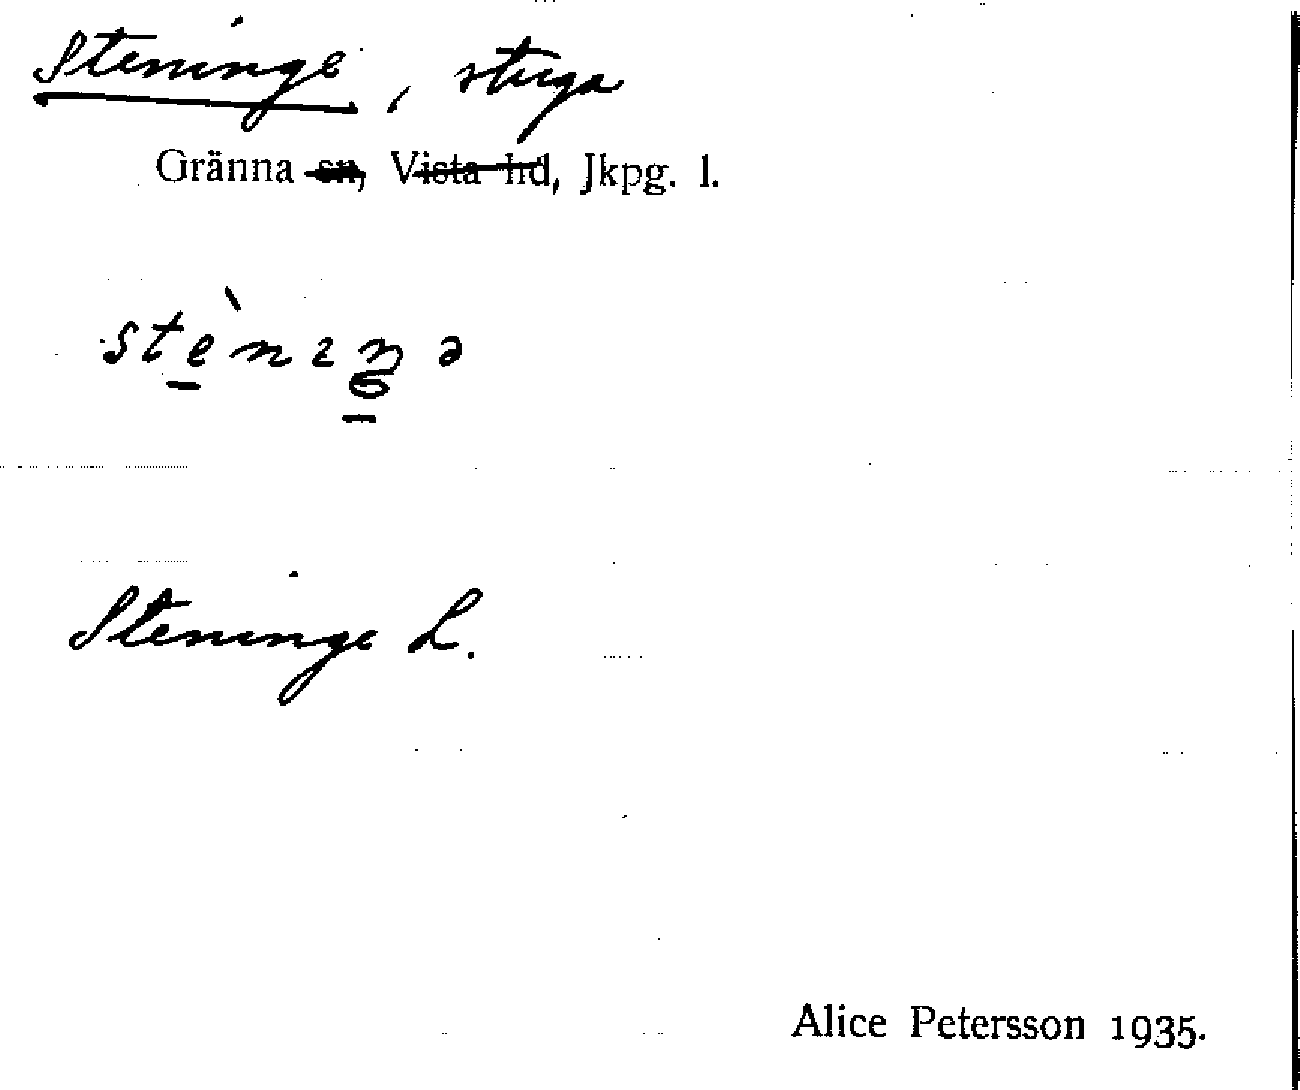 Steninge, stuga
Gränna sn, Vista hd, Jkpg. l.
stèniŋə
Steninge L.
Alice Petersson 1935.